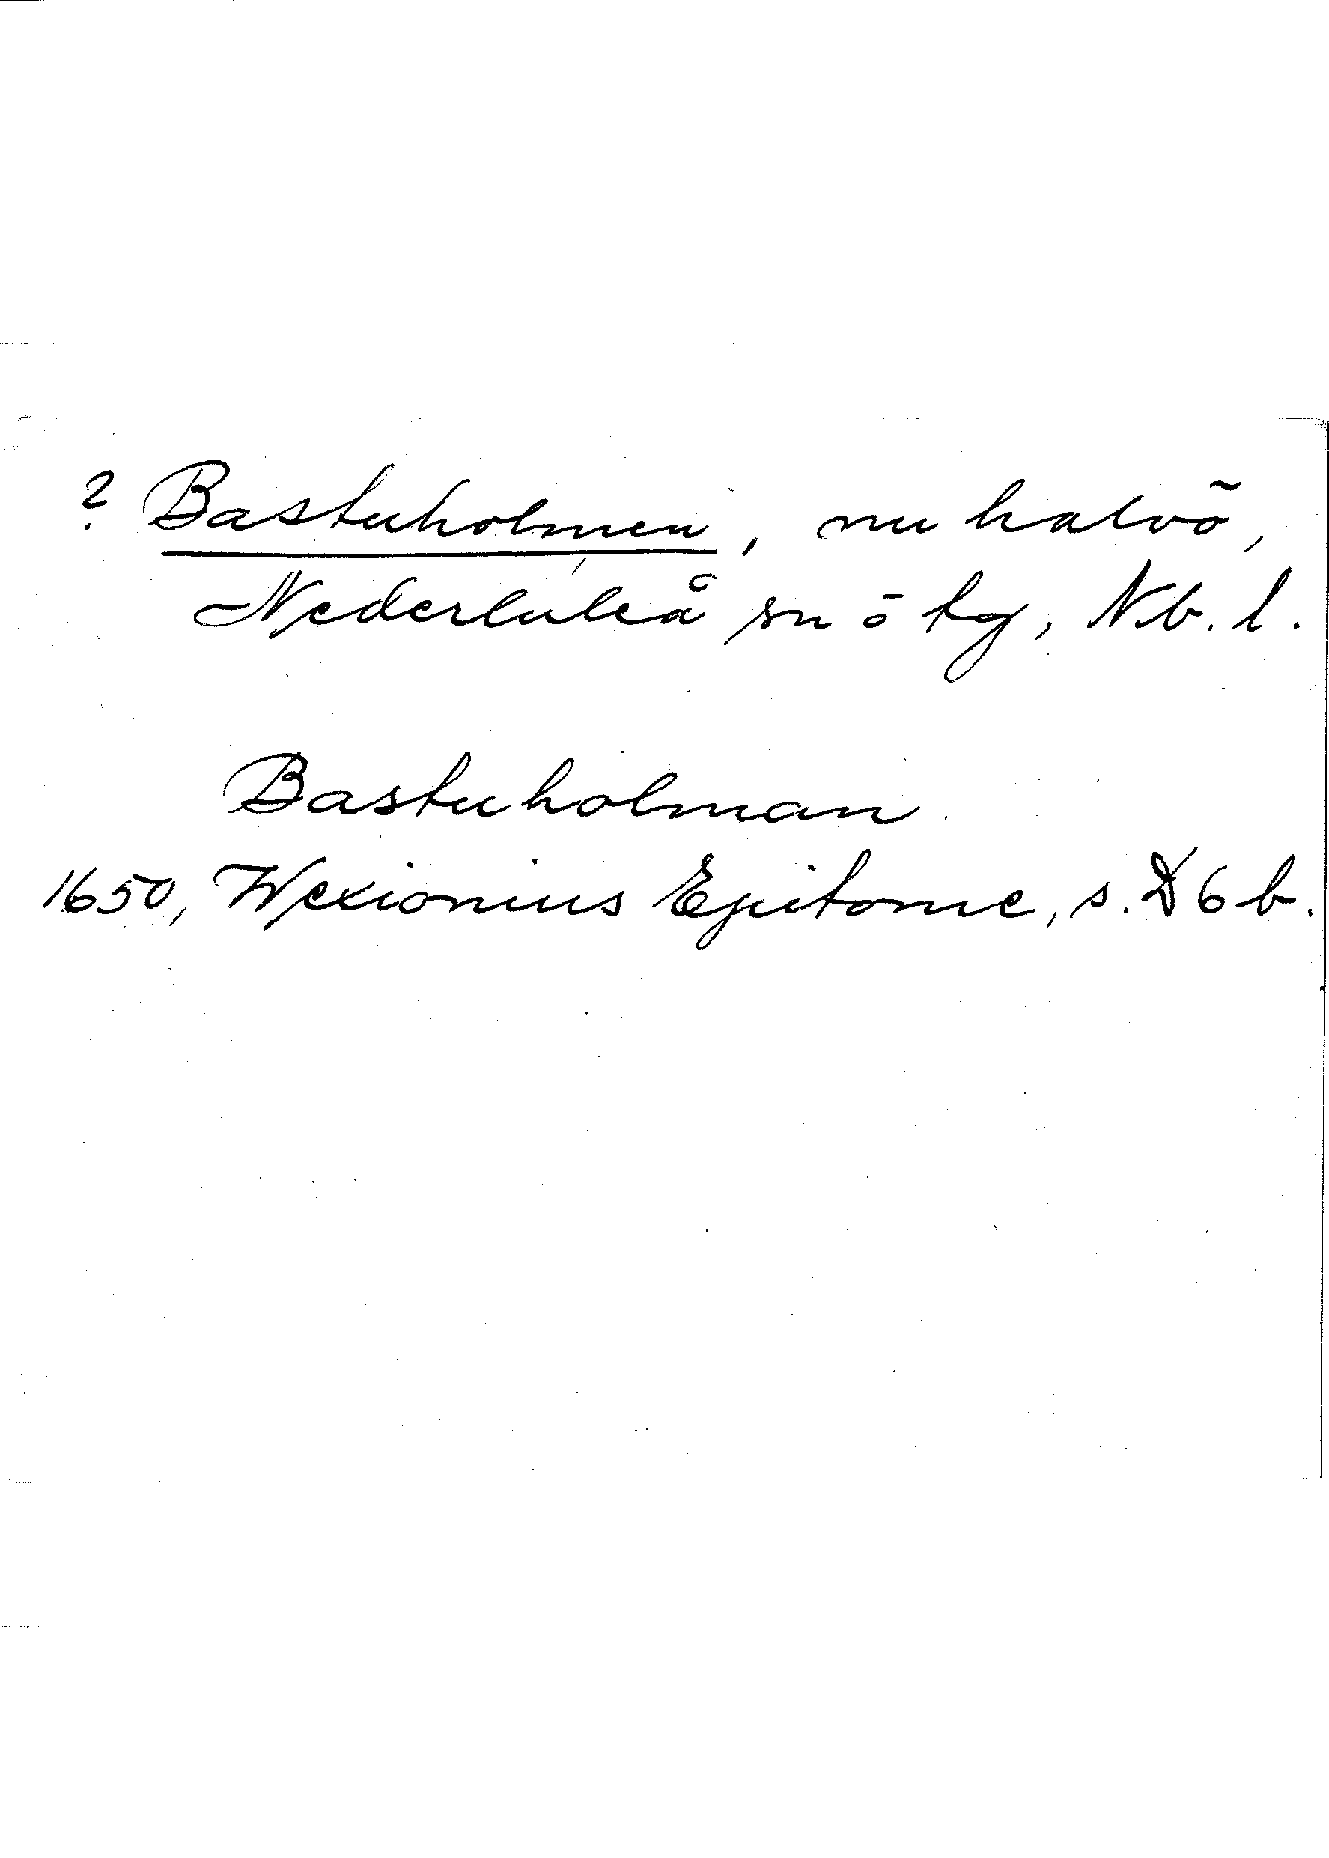 ? Bastuholmen, nu halvö,
Nederluleå sn o tg, Nb. l.
Bastuholman
1650, Wexionius Epitome, s. D6b.